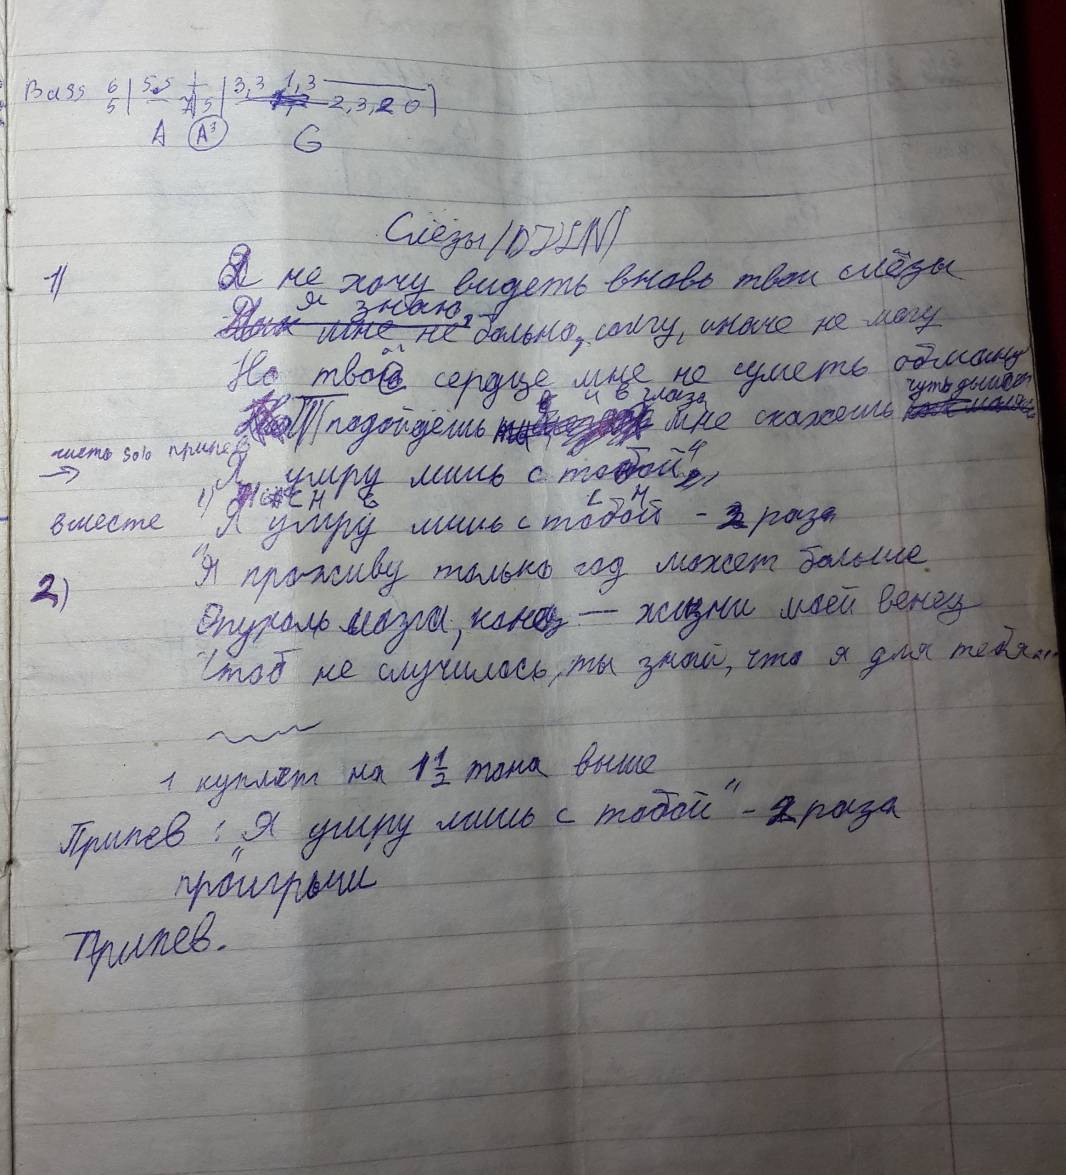 Bass 6 | 5 5 | 3,3 1,3
5 | 7 5 | 2,3,2 0 |
A A³ G
Слёзы /DJIN/
1) Я не хочу видеть вновь твои слёзы
я знаю,
мне не больно, солгу, иначе не могу
Но твоё сердце мне не суметь обмануть
и в глаза чуть дыша
Ты подойдёшь мне скажешь
часть solo припев
→ Я умру лишь с тобой"
вместе "Я умру лишь с тобой - 2 раза
2) "Я проживу только год может больше
Опухоль мозга, конец — жизни моей венец
Чтоб не случилось, ты знай, что я для тебя...
1 куплет на 1 1/2 тона выше
Припев: "Я умру лишь с тобой" - 2 раза
проигрыш
Припев.